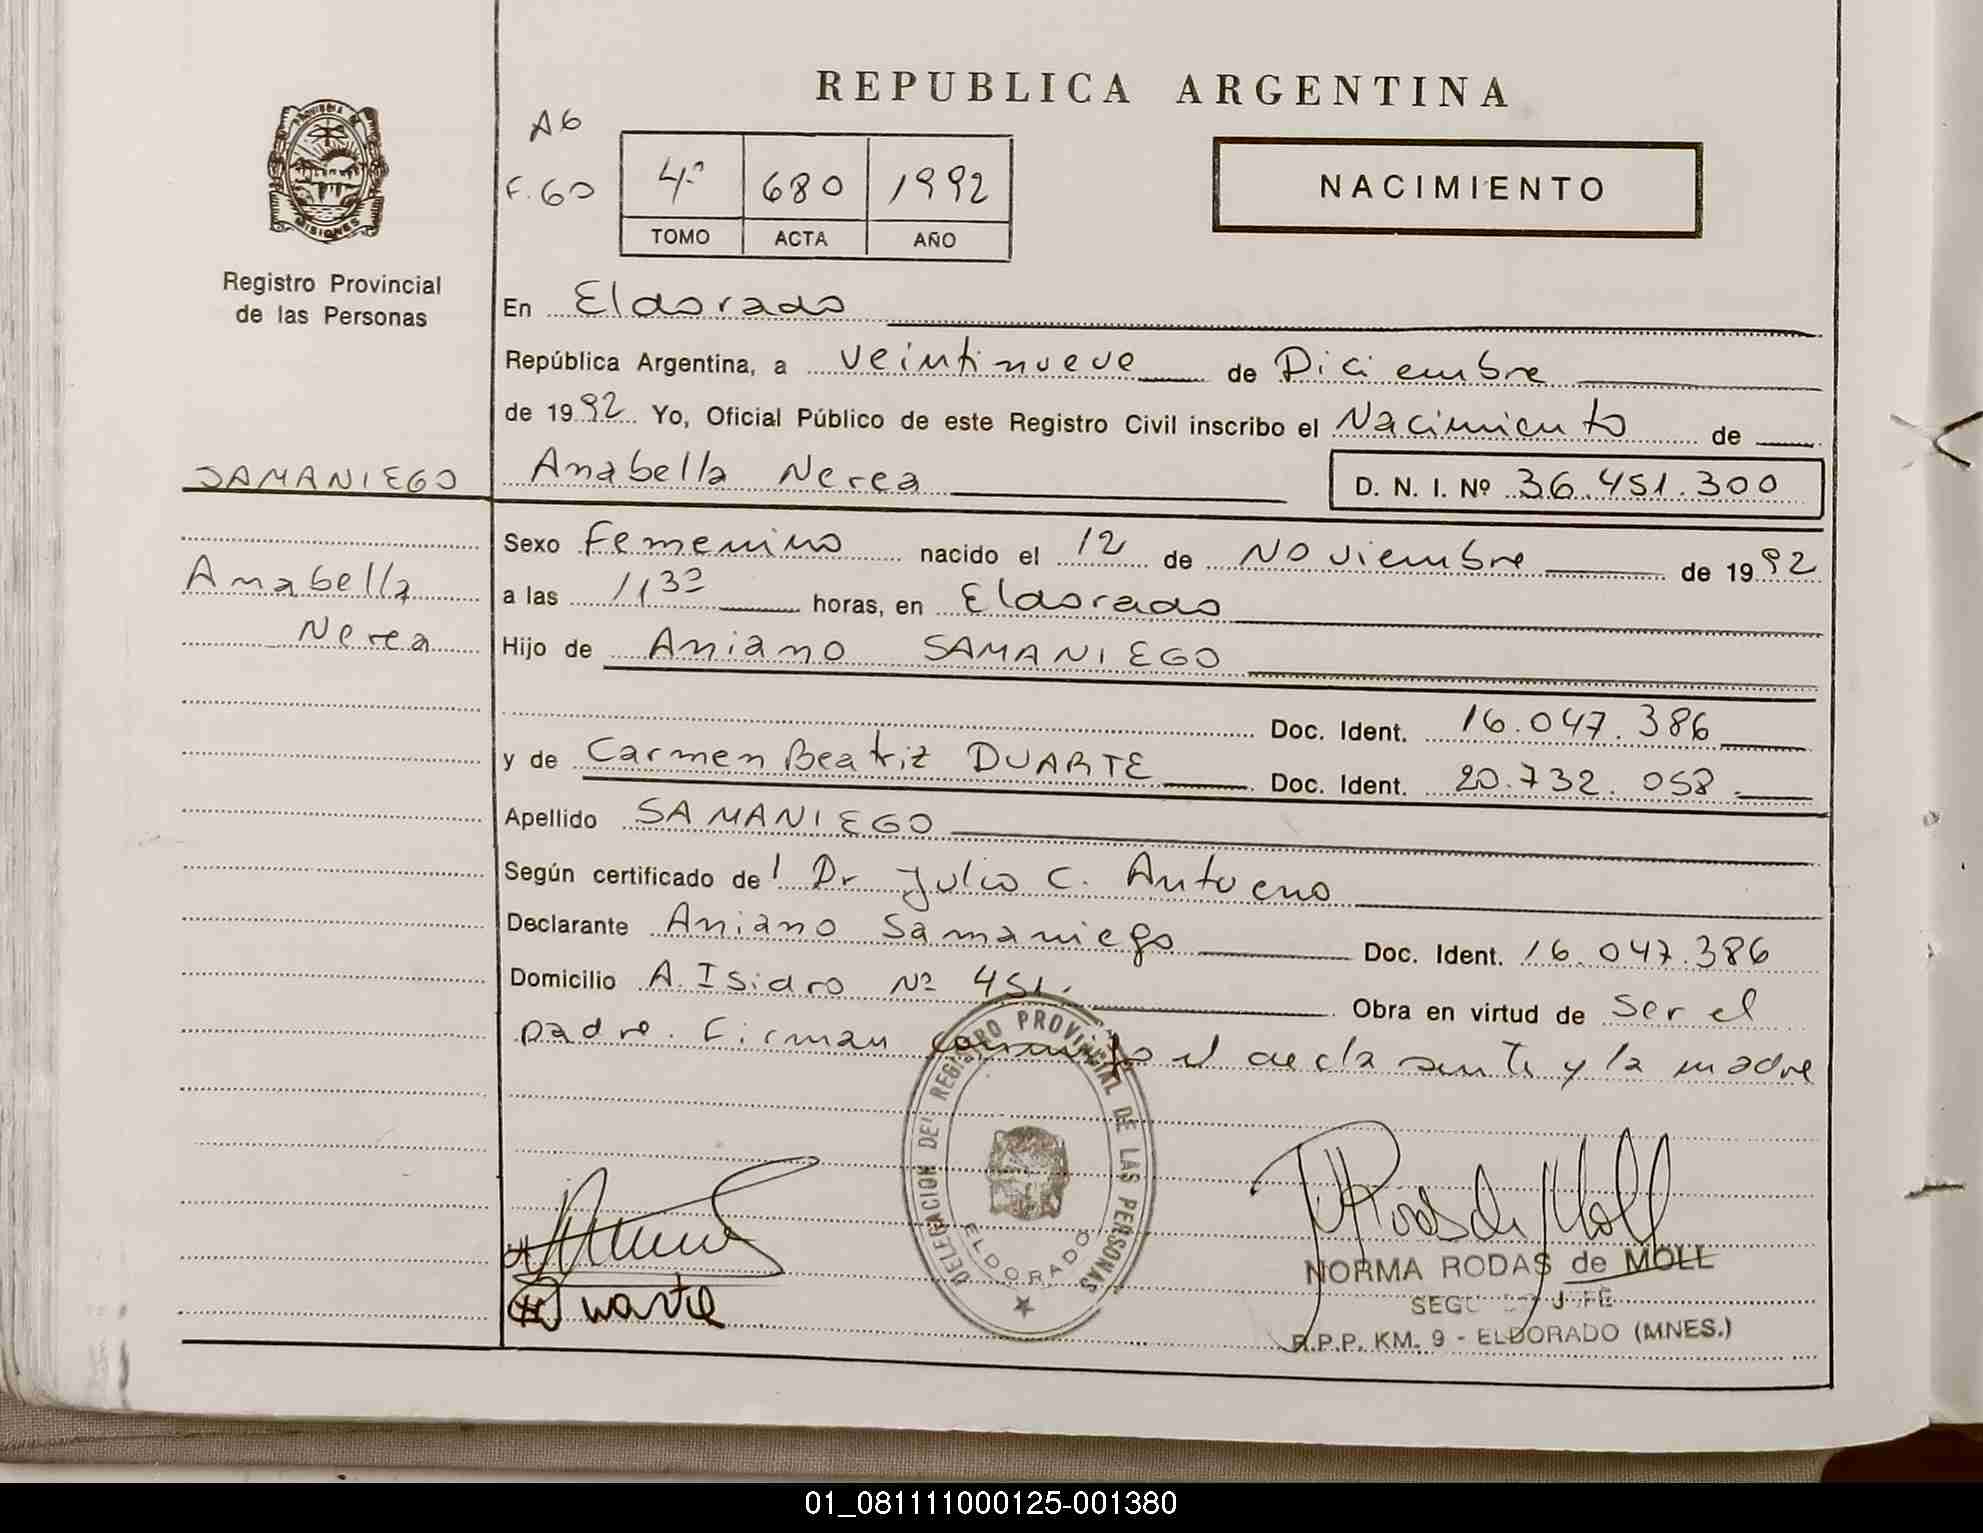 REPUBLICA ARGENTINA
PROVINCIA DE MISIONES
A6
F. 60
4º 680 1992
TOMO ACTA AÑO
NACIMIENTO
Registro Provincial
de las Personas
En Eldorado
República Argentina, a veintinueve de Diciembre
de 1992 Yo, Oficial Público de este Registro Civil inscribo el Nacimiento de
SAMANIEGO
Anabella Nerea D. N. I. Nº 36.451.300
Sexo Femenino nacido el 12 de Noviembre de 1992
Anabella
Nerea
a las 11 30 horas, en Eldorado
Hijo de Aniano SAMANIEGO
Doc. Ident. 16.047.386
y de Carmen Beatriz DUARTE Doc. Ident. 20.732.058
Apellido SAMANIEGO
Según certificado del Dr Julio C.
Declarante Aniano Samaniego Doc. Ident. 16.047.386
Domicilio A. Isidro Nº 451. Obra en virtud de ser el
padre. Firman conmigo el declarante y la madre
DELEGACION DEL REGISTRO PROVINCIAL DE LAS PERSONAS
ELDORADO
Duarte
NRodas de Moll
NORMA RODAS de MOLL
R.P.P. KM. 9 - ELDORADO (MNES.)
01_081111000125-001380